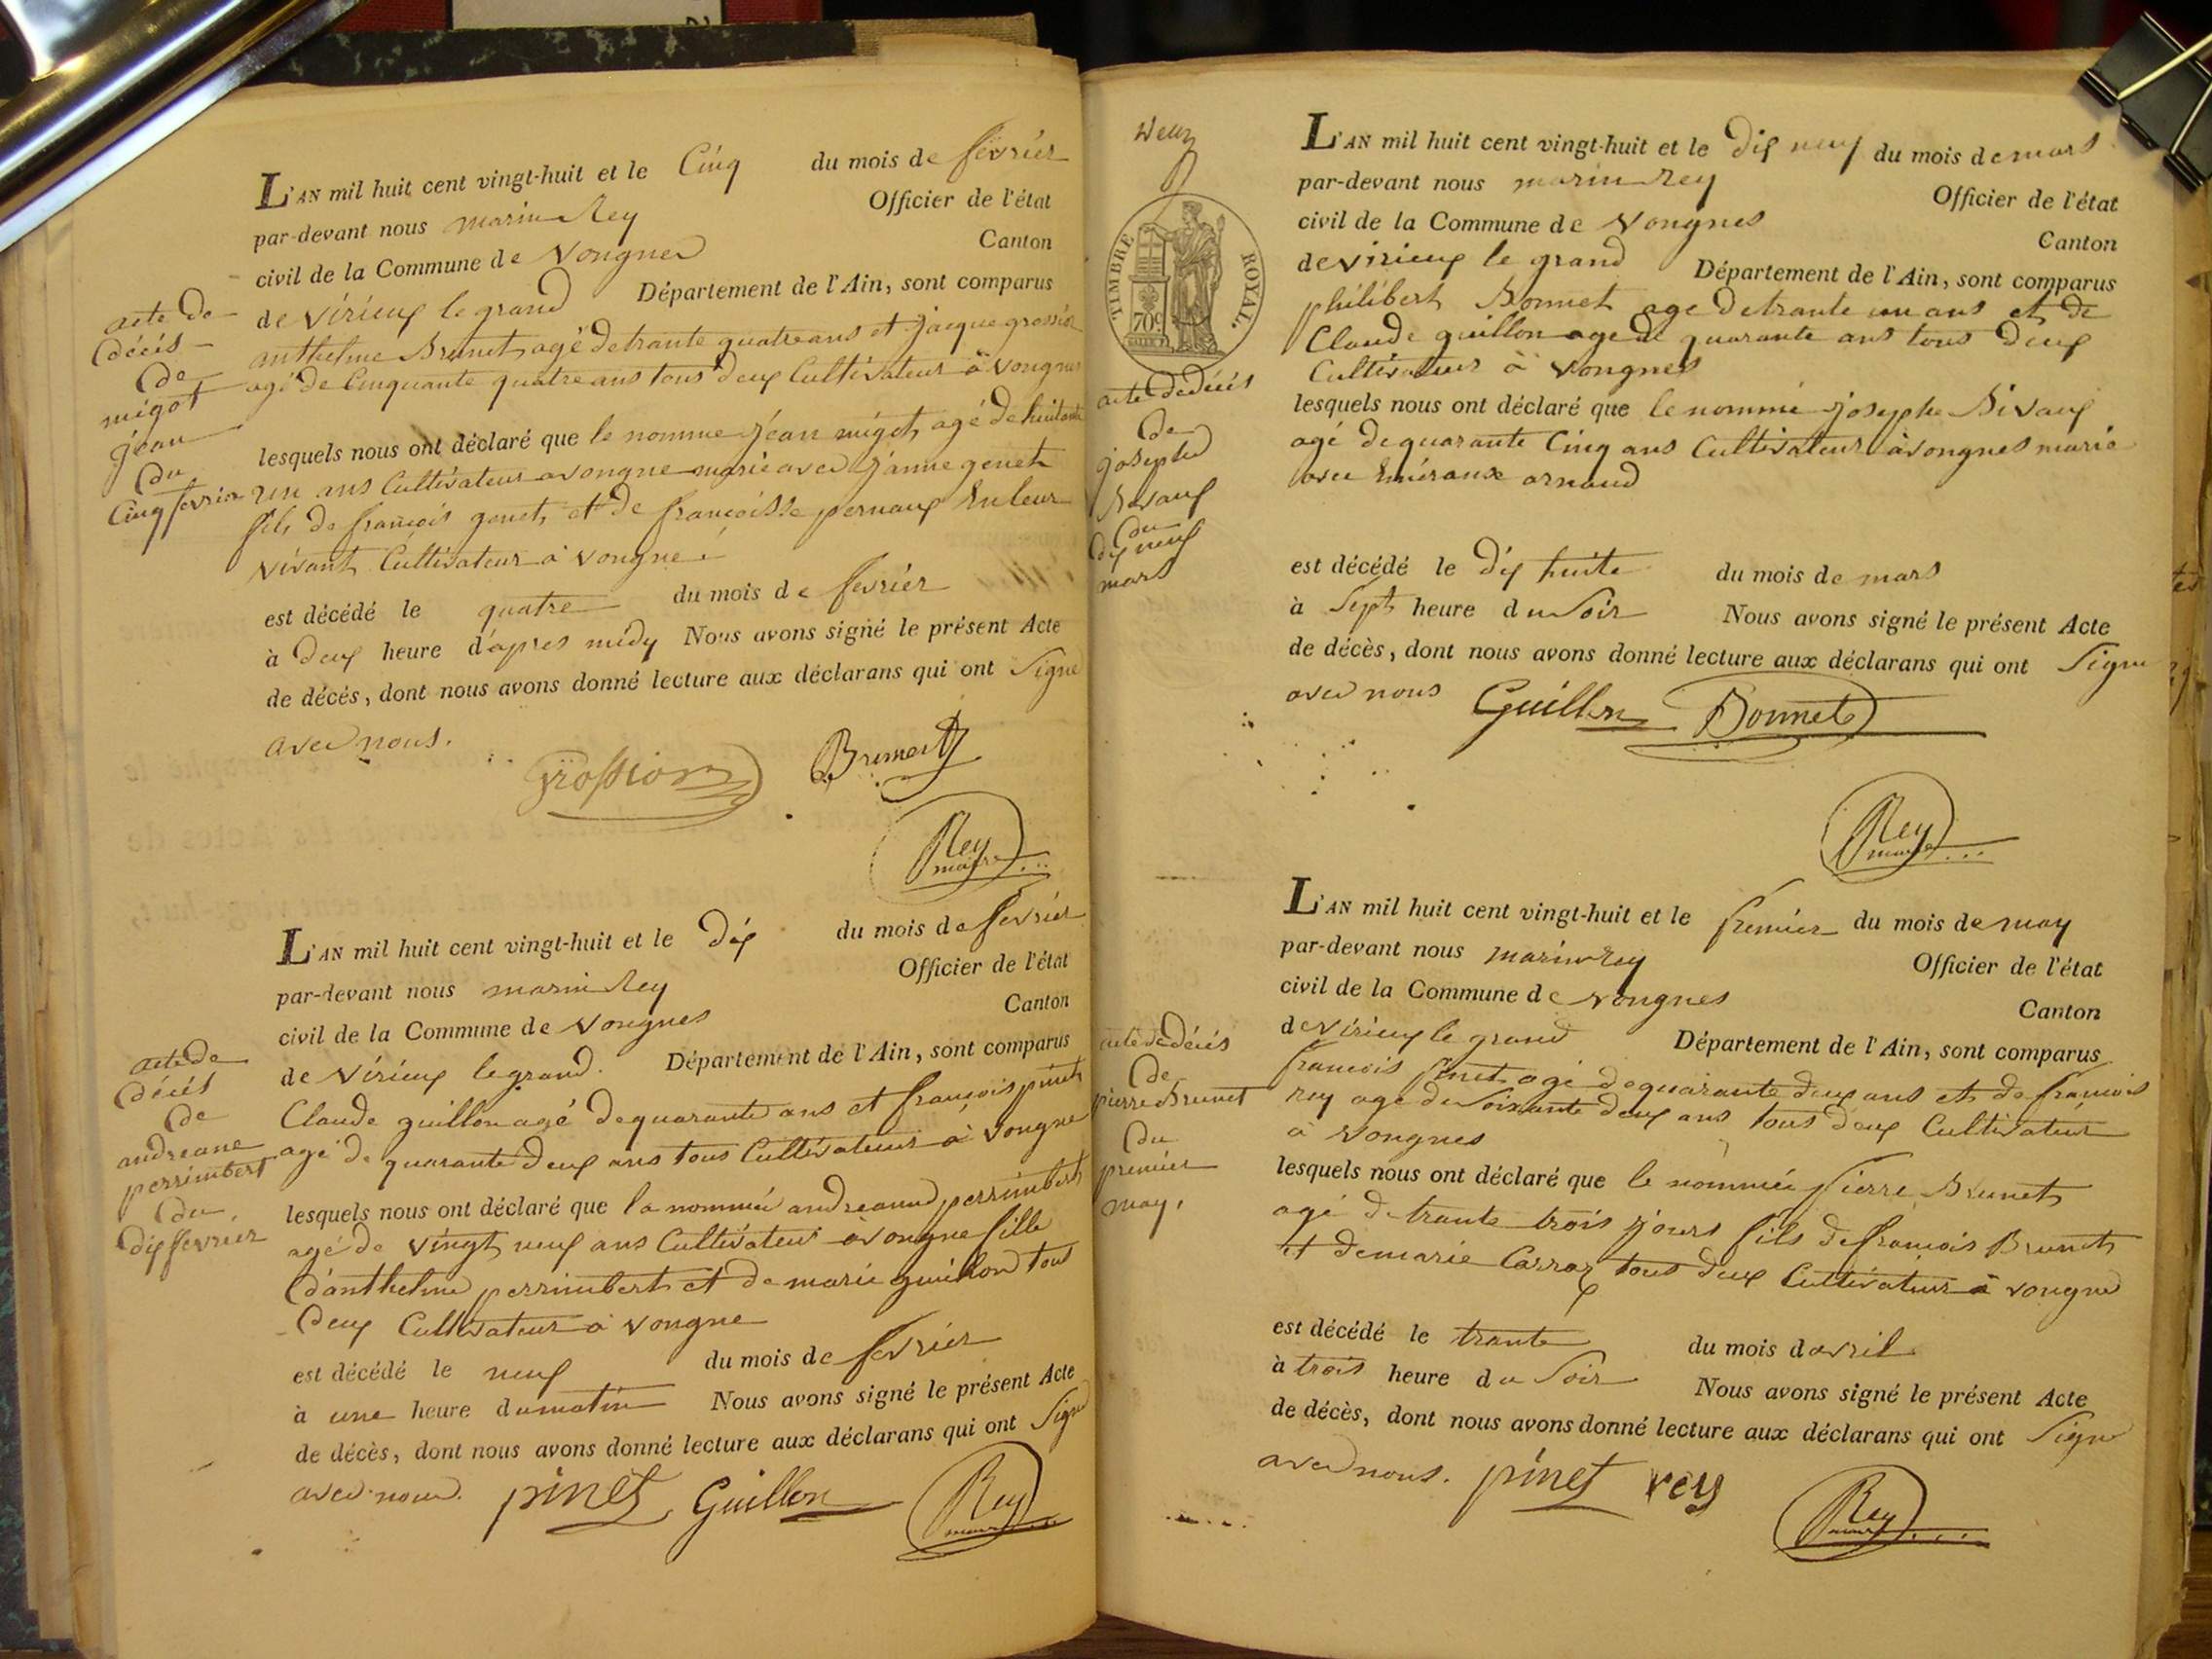 L'AN mil huit cent vingt-huit et le Cinq du mois de fevrier
par-devant nous marin Rey Officier de l'état
civil de la Commune de Vongnes Canton
de virieux le grand Département de l'Ain, sont comparus
anthelme Brunet agé de trante quatre ans et jacque grossion
agé de Cinquante quatre ans tous deux Cultivateur à vongnes
lesquels nous ont déclaré que le nomme jéan migot agé de huitante
un ans Cultivateur a vongne marie avec janne genet
fils de francois genet et de francoisse pernaux En leur
vivant Cultivateur à vongne
est décédé le quatre du mois de fevrier
à deux heure d'apres midy Nous avons signé le présent Acte
de décès, dont nous avons donné lecture aux déclarans qui ont Signé
avec nous.
Grossion Brunet
Rey
maire
acte de
décés
de
migot
jéan
du
Cinq fevrier
L'AN mil huit cent vingt-huit et le dix du mois de fevrier
par-devant nous marin Rey Officier de l'état
civil de la Commune de vongnes Canton
de virieux le grand. Département de l'Ain, sont comparus
Claude guillon agé de quarante ans et francois pinet
agé de quarante deux ans tous Cultivateur à vongne
lesquels nous ont déclaré que la nommée andreanne perrimbert
agé de vingt neuf ans Cultivateur à vongne fille
d'anthelme perrimbert et de marie guillon tous
deux Cultivateur à vongne
est décédé le neuf du mois de fevrier
à une heure du matin Nous avons signé le présent Acte
de décès, dont nous avons donné lecture aux déclarans qui ont Signé
avec nous. pinet Guillon Rey
maire
acte de
décés
de
andreane
perrimbert
du
dix fevrier
TIMBRE ROYAL.
70c
L'AN mil huit cent vingt-huit et le dix neuf du mois de mars
par-devant nous marin Rey Officier de l'état
civil de la Commune de vongnes Canton
de virieux le grand Département de l'Ain, sont comparus
philibert Bonnet age de trante un ans et de
Claude guillon age de quarante ans tous deux
Cultivateur à vongnes
lesquels nous ont déclaré que le nommé josephe Bivaux
agé de quarante Cinq ans Cultivateur à vongnes marie
avec Eméranse arnaud
est décédé le dix huite du mois de mars
à Sept heure du Soir Nous avons signé le présent Acte
de décès, dont nous avons donné lecture aux déclarans qui ont Signe
avec nous Guillon Bonnet
Rey
maire
acte de décés
de
josephe
Bivaux
du
dix neuf
mars
L'AN mil huit cent vingt-huit et le premier du mois de may
par-devant nous marin Rey Officier de l'état
civil de la Commune de vongnes Canton
de virieux le grand Département de l'Ain, sont comparus
francois pinet agé de quarante deux ans et de francois
rey age de Soixante deux ans tous deux Cultivateur
à vongnes
lesquels nous ont déclaré que le nommée pierre Brunet
agé de trante trois jours fils de francois Brunet
et de marie Carraz tous deux Cultivateur à vongne
est décédé le trante du mois d avril
à trois heure du Soir Nous avons signé le présent Acte
de décès, dont nous avons donné lecture aux déclarans qui ont Signe
avec nous. pinet rey
Rey
maire
acte de décés
de
pierre Brunet
du
premier
may,